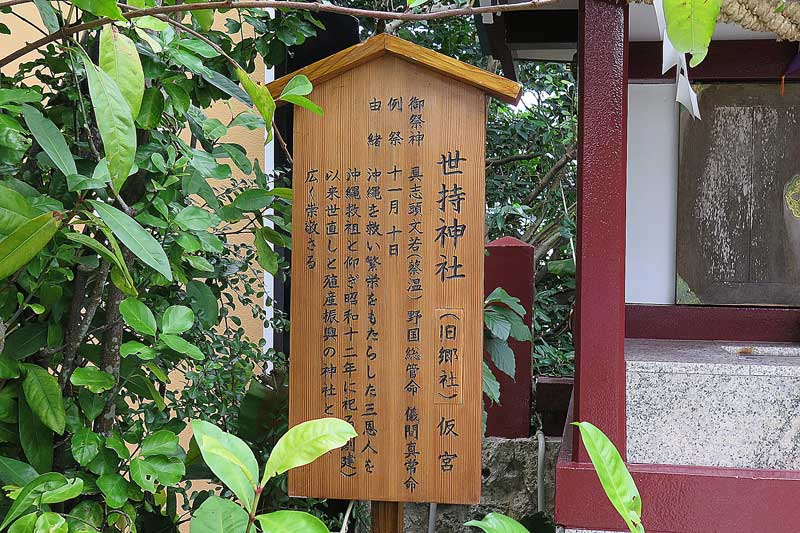 世持神社(旧郷社)仮宮
御祭神 具志頭文若(蔡温) 野国総管命 儀間真常命
例祭 十一月十日
由緒 沖縄を救い繁栄をもたらした三恩人を
沖縄救祖と仰ぎ昭和十二年に祀る 建)
以来世直しと殖産振興の神社と
広く崇敬さる